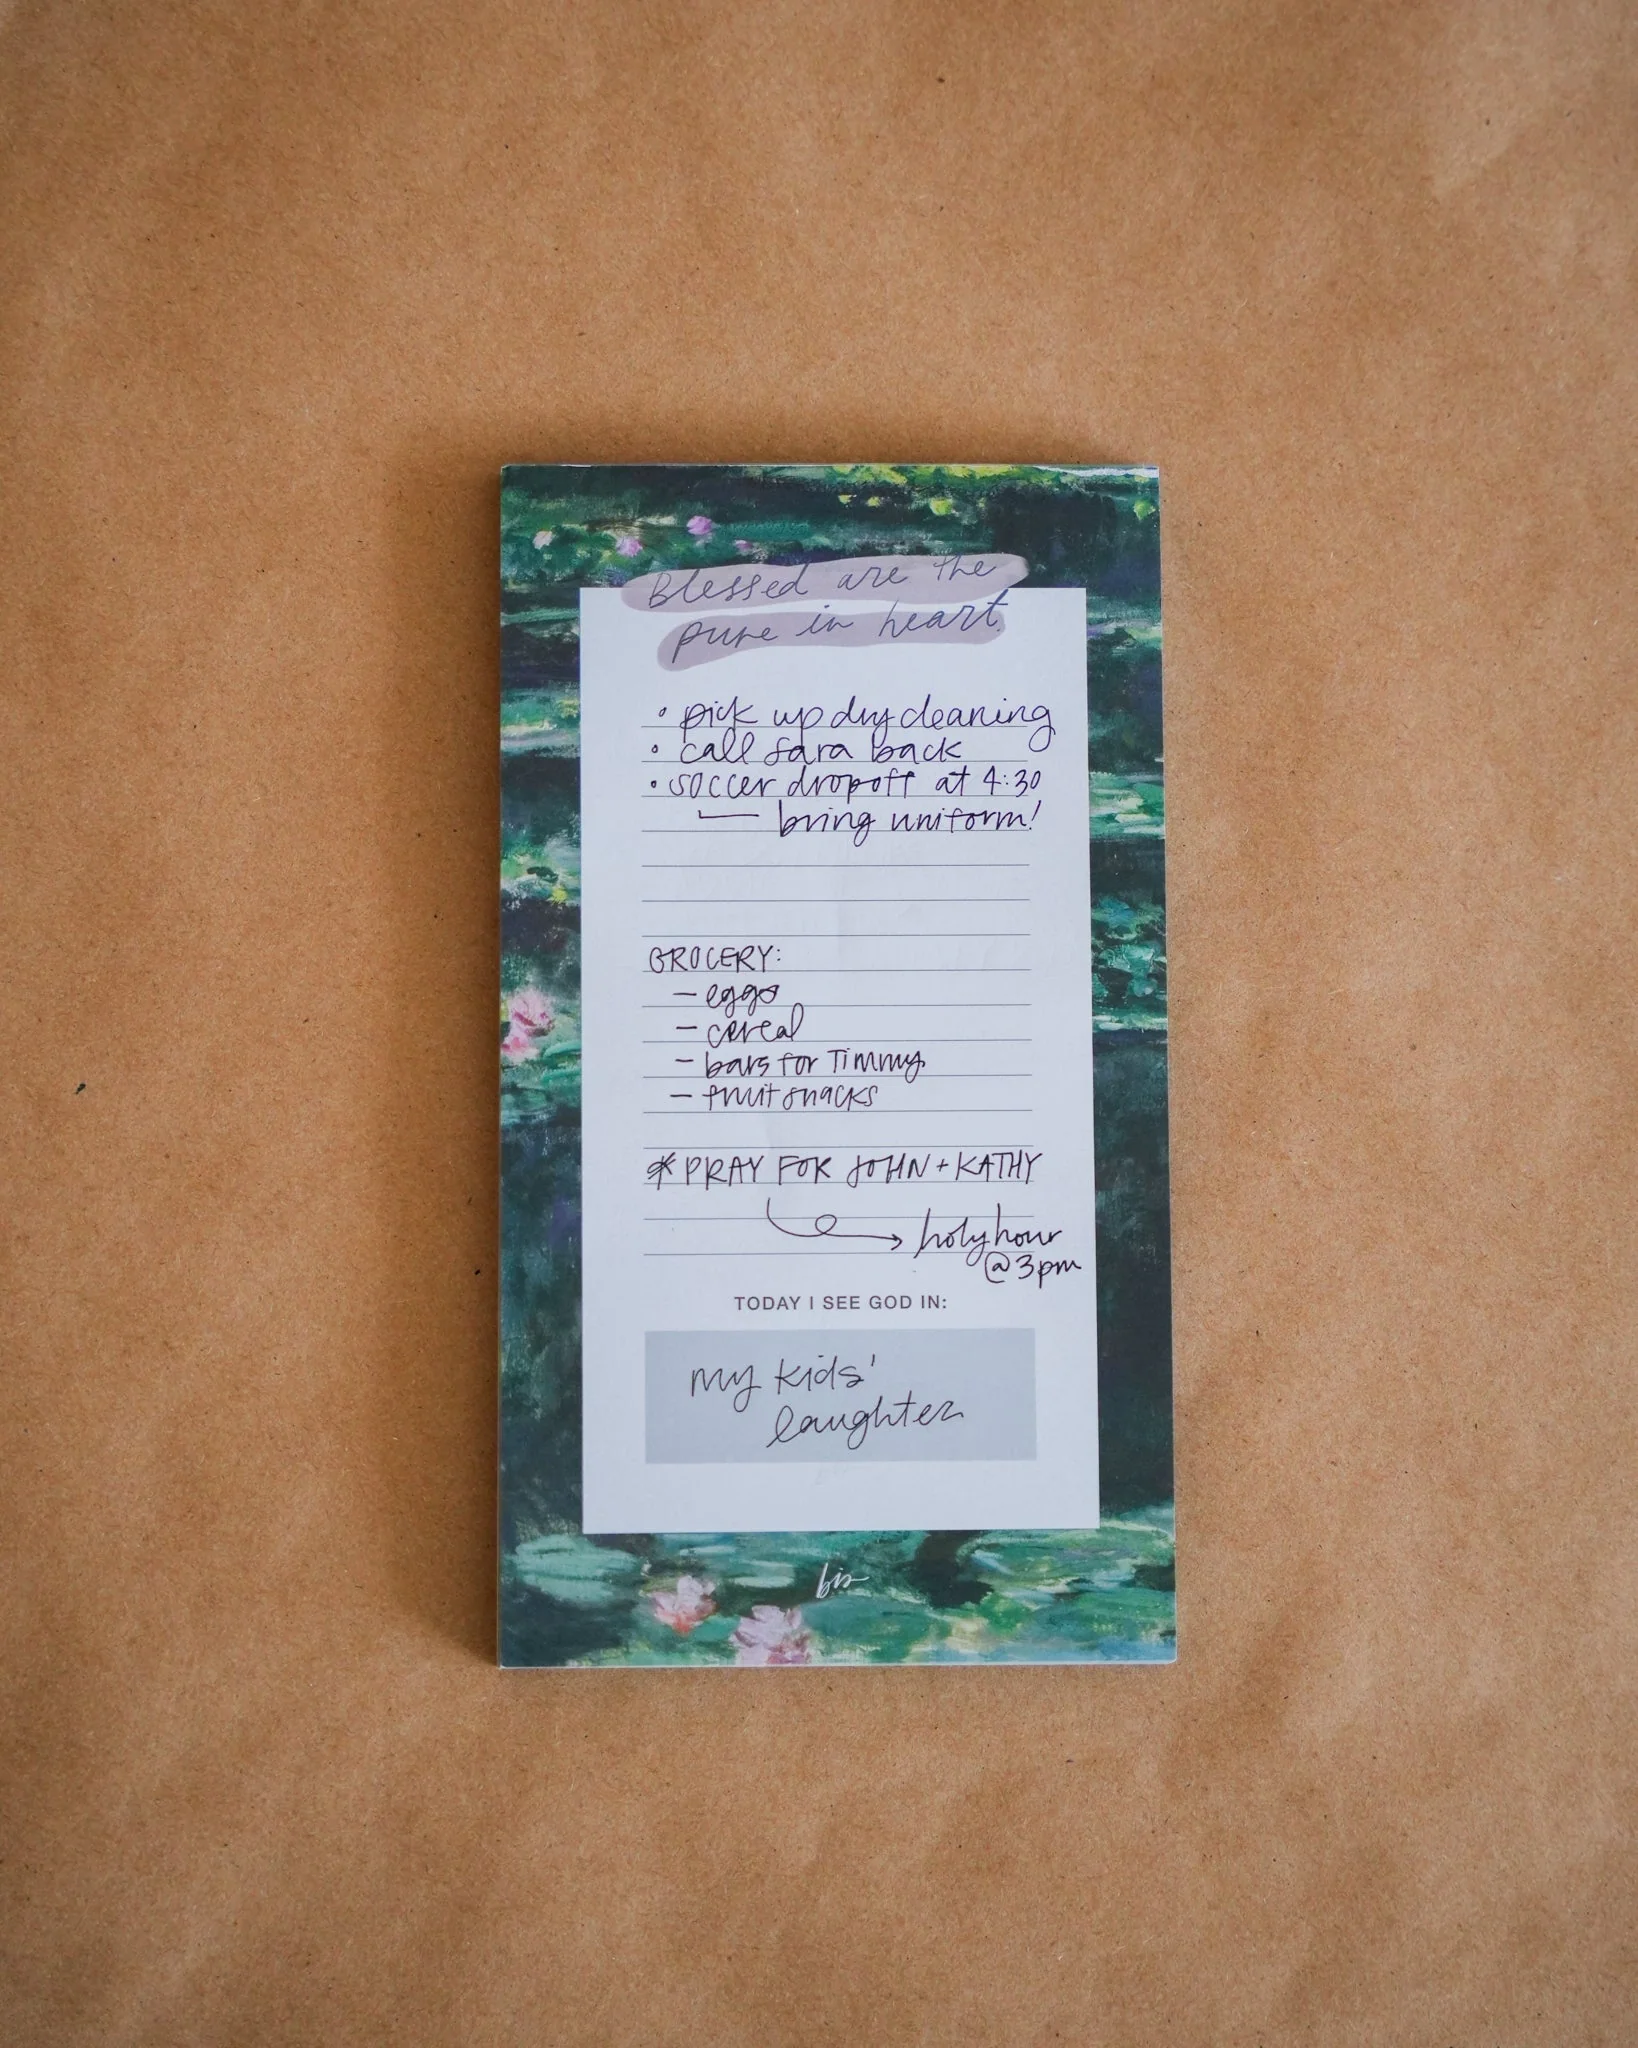 Blessed are the
pure in heart.
• pick up dry cleaning
• call Sara back
• soccer dropoff at 4:30
— bring uniform!
GROCERY:
— eggs
— cereal
— bars for Timmy
— fruit snacks
* PRAY FOR JOHN + KATHY
holy hour
@ 3pm
TODAY I SEE GOD IN:
my kids'
laughter
bis